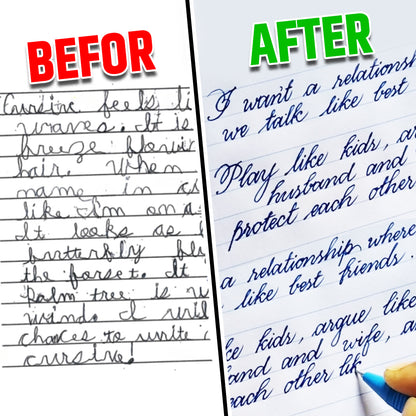 BEFOR
Cursive feels li
waves. It is
breeze blowi
hair. When
name in cu
like I'm on a
It looks as i
butterfly fli
the forset. It
palm tree is w
wind. I will
chances to write i
cursive!
AFTER
I want a relationsh
we talk like best
Play like kids, ar
husband and
protect each other
a relationship where
like best friends.
ke kids, argue like
band and wife, a
each other lik